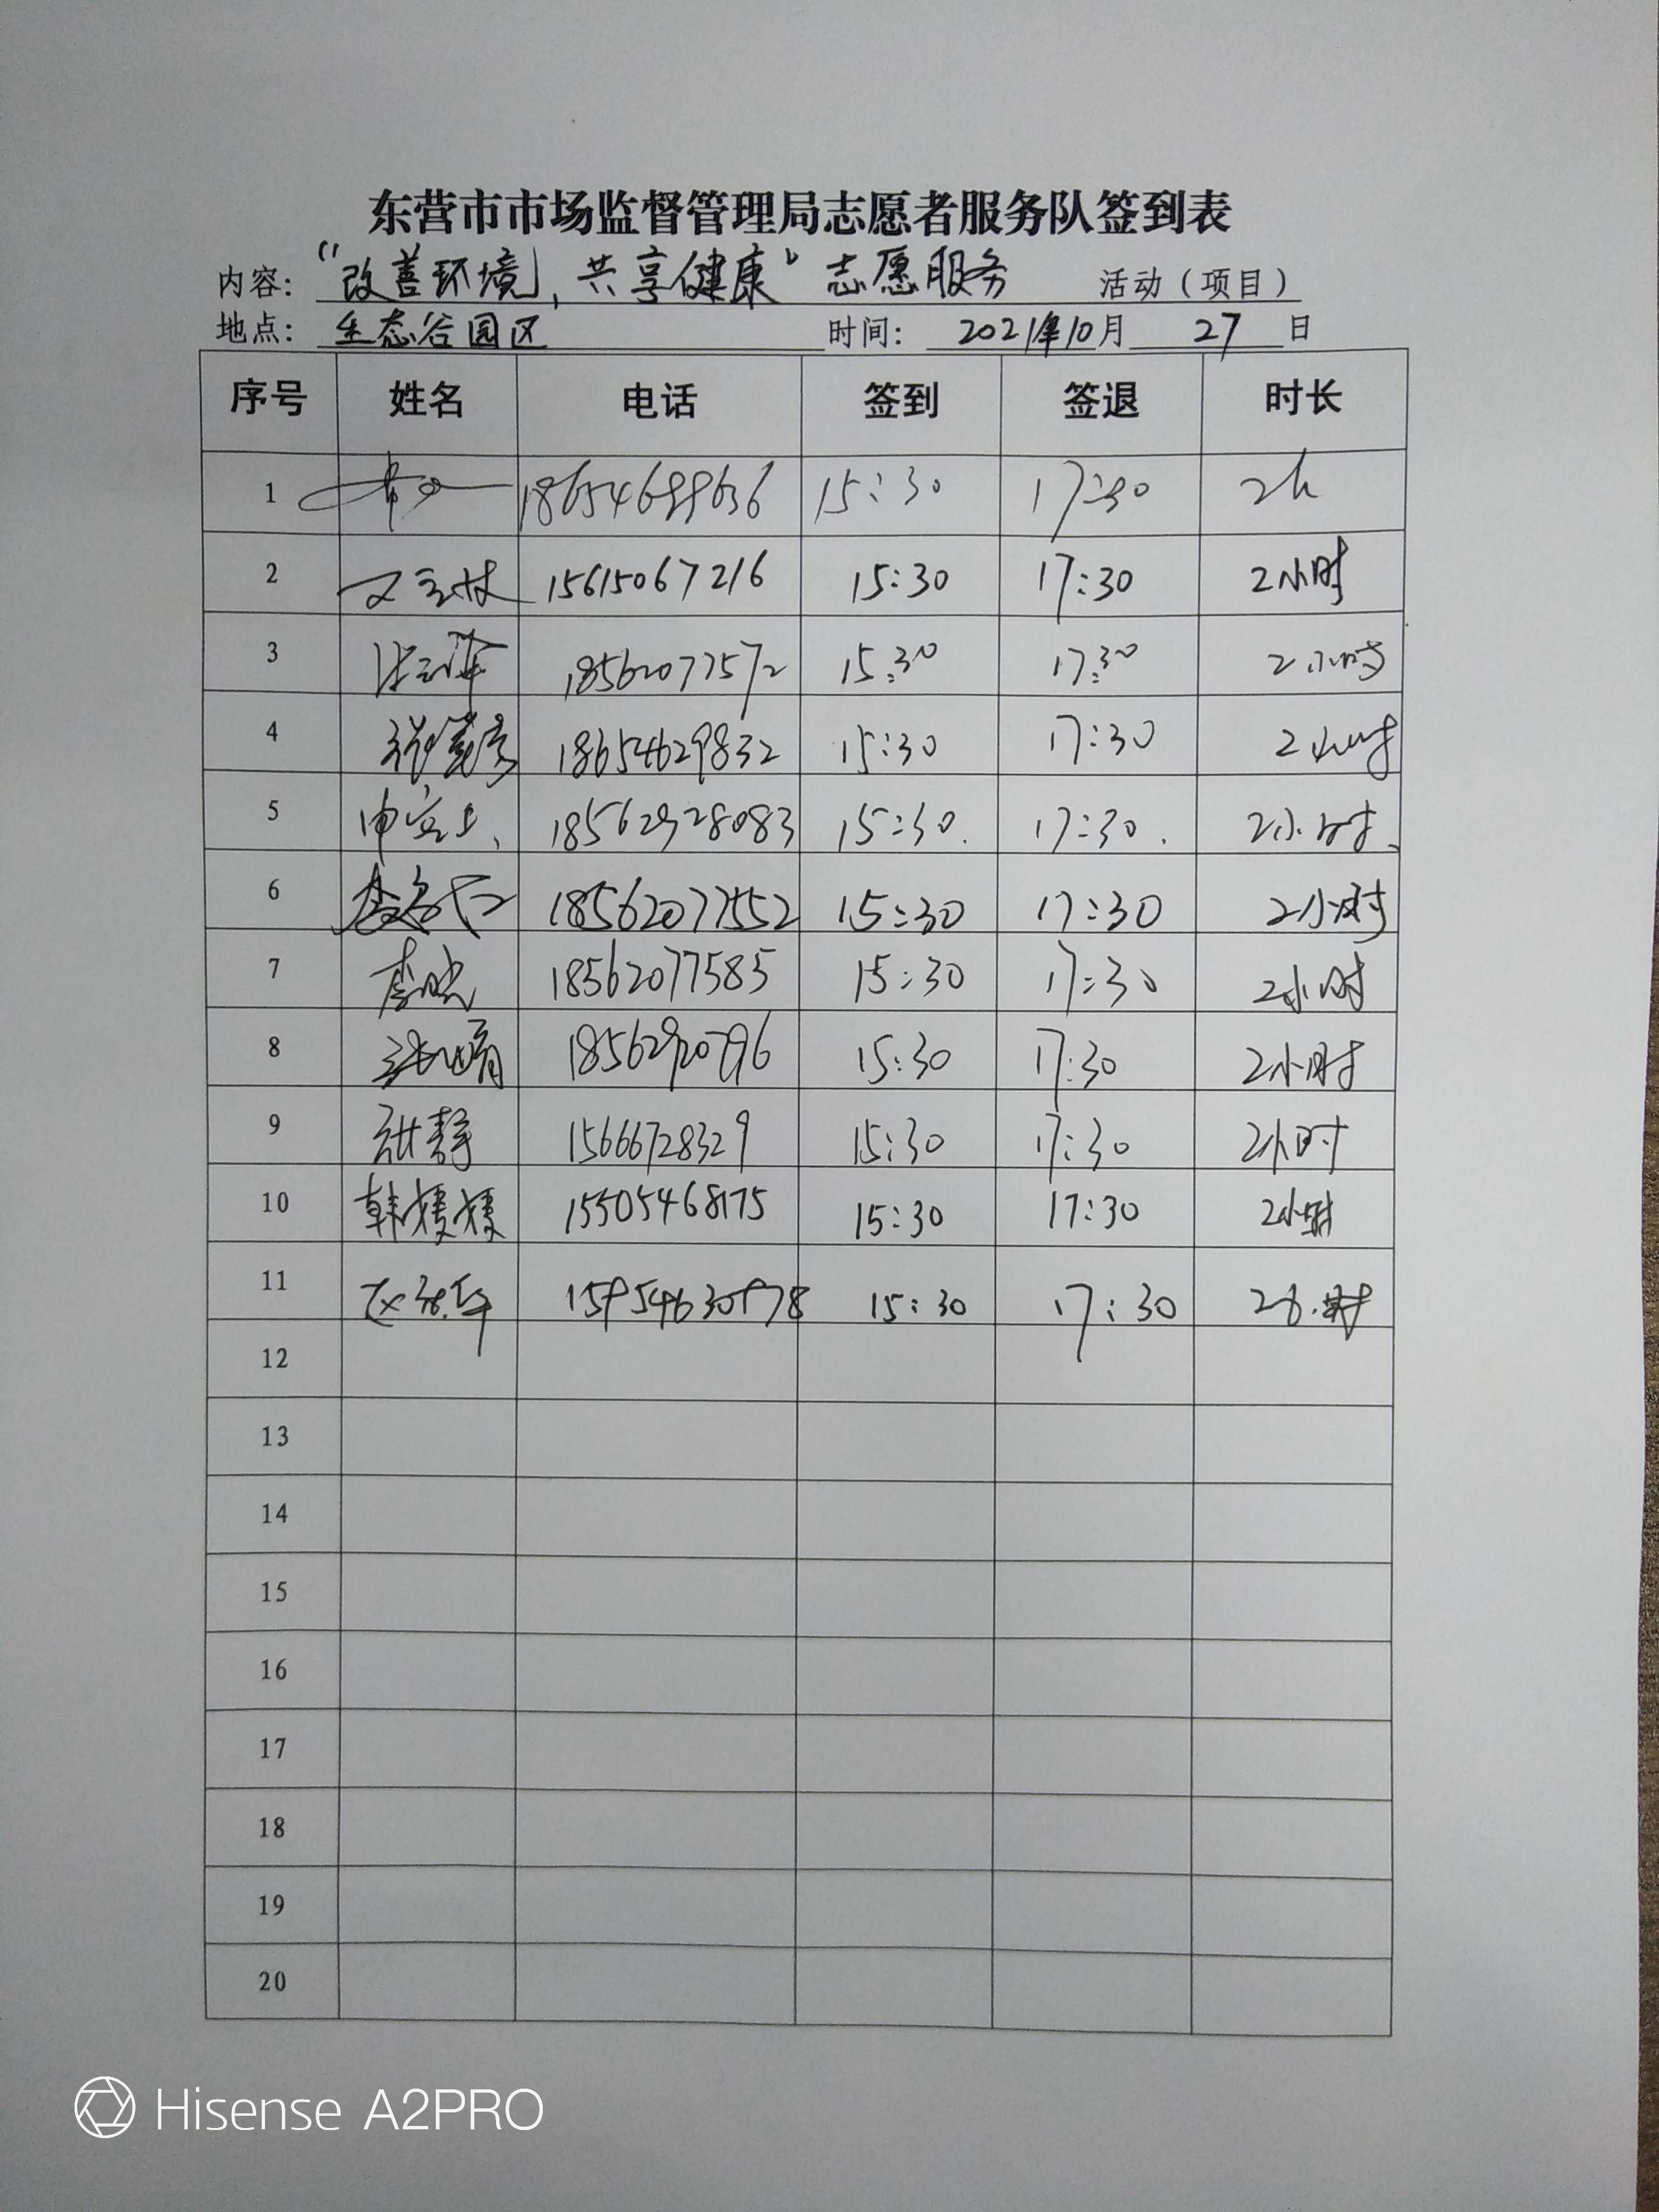 东营市市场监督管理局志愿者服务队签到表
内容：“改善环境，共享健康”志愿服务 活动（项目）
地点：生态谷园区 时间：2021年10月27日
序号 姓名 电话 签到 签退 时长
1 15:30 17:30 2h
2 15615067216 15:30 17:30 2小时
3 18562077572 15:30 17:30 2小时
4 18654629832 15:30 17:30 2小时
5 18562928083 15:30. 17:30. 2小时、
6 18562077552 15:30 17:30 2小时
7 李晓 18562077585 15:30 17:30 2小时
8 15:30 17:30 2小时
9 张静 15666728329 15:30 17:30 2小时
10 韩媛媛 15505468175 15:30 17:30 2小时
11 15:30 17:30 2小时
12
13
14
15
16
17
18
19
20
Hisense A2PRO